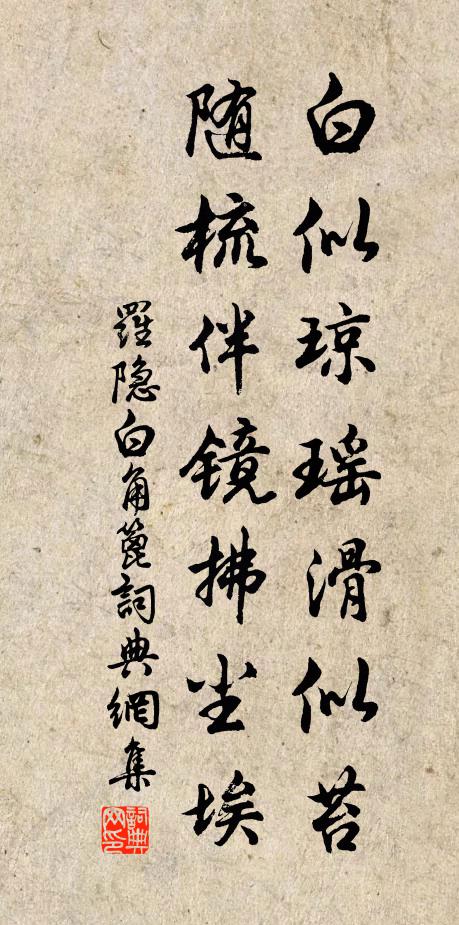 白似琼瑶滑似苔
随梳伴镜拂尘埃
羅隐白角篦詞典網集
詞典网印